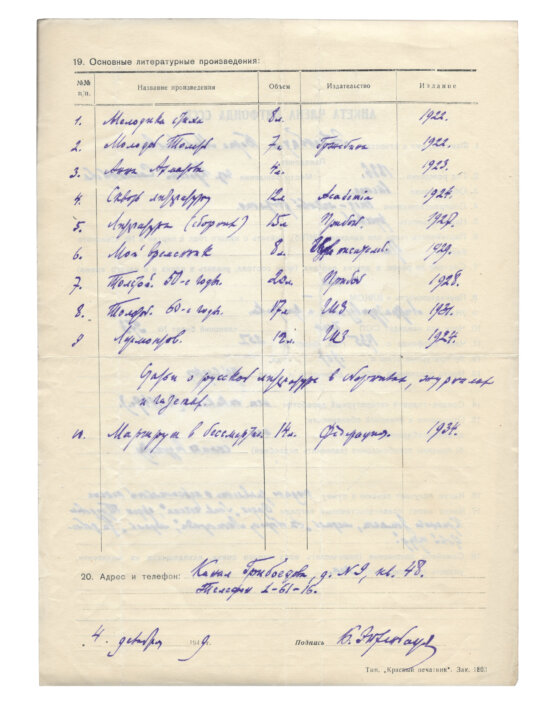 19. Основные литературные произведения:
№№ п.п. Название произведения Объем Издательство Издание
1. Мелодика стиха 8 л. 1922.
2. Молодой Толстой 7 л. Гржебин 1922.
3. Анна Ахматова 4 л. 1923.
4. Сквозь литературу 12 л. Academia 1924.
5. Литература (сборник) 15 л. Прибой. 1927.
6. Мой временник 8 л. 1929.
7. Толстой. 50-е годы. 20 л. Прибой 1928.
8. Толстой. 60-е годы. 17 л. ГИЗ 1931.
9 Лермонтов. 12 л. ГИЗ 1924.
Статьи о русской литературе в сборниках, журналах
и газетах
10. Маршрут в бессмертие. 14 л. Федерация. 1934.
20. Адрес и телефон: Канал Грибоедова, д. № 9, кв. 48.
Телефон 2-61-16.
4. декабря 194 г. Подпись Б. Эйхенбаум
Тип. „Красный печатник". Зак. 280